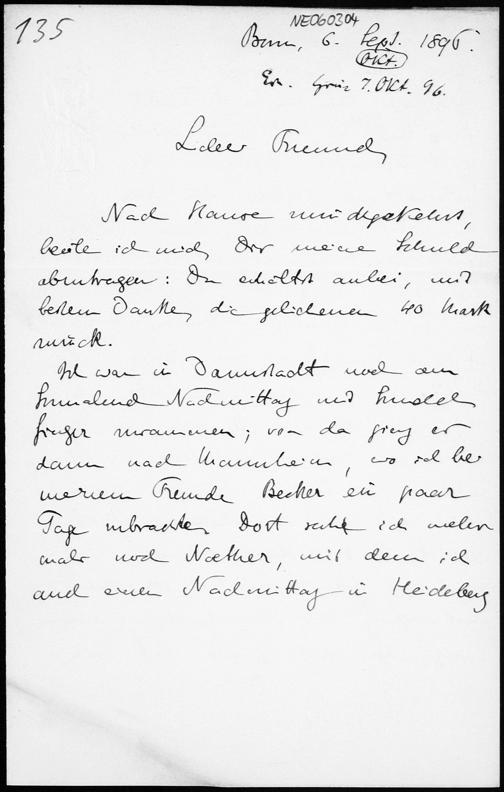 135
NE060304
Bonn, 6. Sept. 1896.
Okt.
7. Okt. 96.
Lieber Freund,
Nach Hause zurückgekehrt,
beeile ich mich, Dir meine Schuld
abzutragen: Du erhältst anbei, mit
bestem Danke, die geliehenen 40 Mark
zurück.
Ich war in Darmstadt noch am
Sonnabend Nachmittag mit
Finger zusammen; von da ging es
dann nach Mannheim, wo ich bei
meinem Freunde Becker ein paar
Tage zubrachte. Dort sah ich mehr
mals noch Noether, mit dem ich
auch einen Nachmittag in Heidelberg